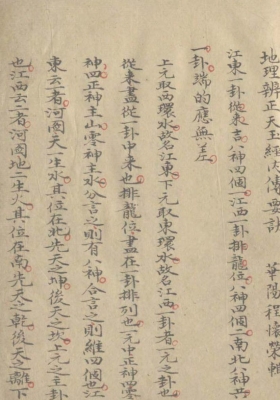 地理辨正天玉經內傳要訣　華陽程懷榮輯
江東一卦從來吉八神四個一江西一卦排龍位八神四個二南北八神共
一卦端的應無差
上元取西環水故名江東下元取東環水故名江西一卦者一元之卦也
從來盡從一卦中來也排龍位盡在一卦排列也一元中正神四零
神四正神主山零神主水分言之則有八神合言之則維四個也江
東云一者河圖天一生水其位在北先天之坤後天之坎上元之主卦
也江西云二者河圖地二生火其位在南先天之乾後天之離下